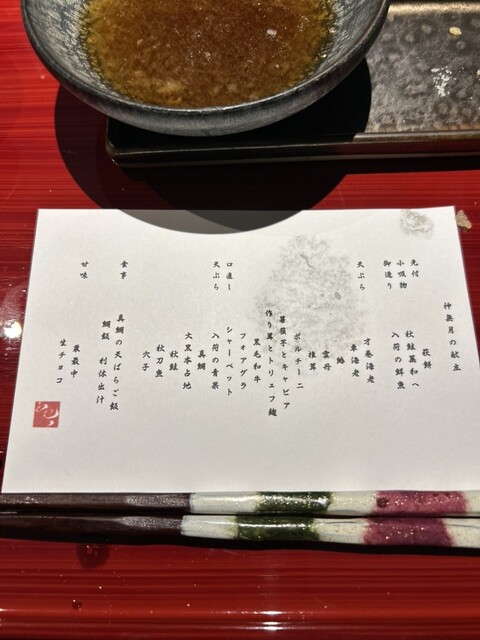 神無月の献立
先付 萩餅
小吸物 秋鮭和へ
御造り 入荷の鮮魚
天ぷら 才巻海老
車海老
雲丹
椎茸
ポルチーニ
芋とキャビア
作り茸とトリュフ麹
黒毛和牛
フォアグラ
口直し シャーベット
天ぷら 入荷の青果
真鯛
大黒本占地
秋鮭
秋刀魚
穴子
食事 真鯛の天ばらご飯
鯛飯 利休出汁
甘味 最中
生チョコ